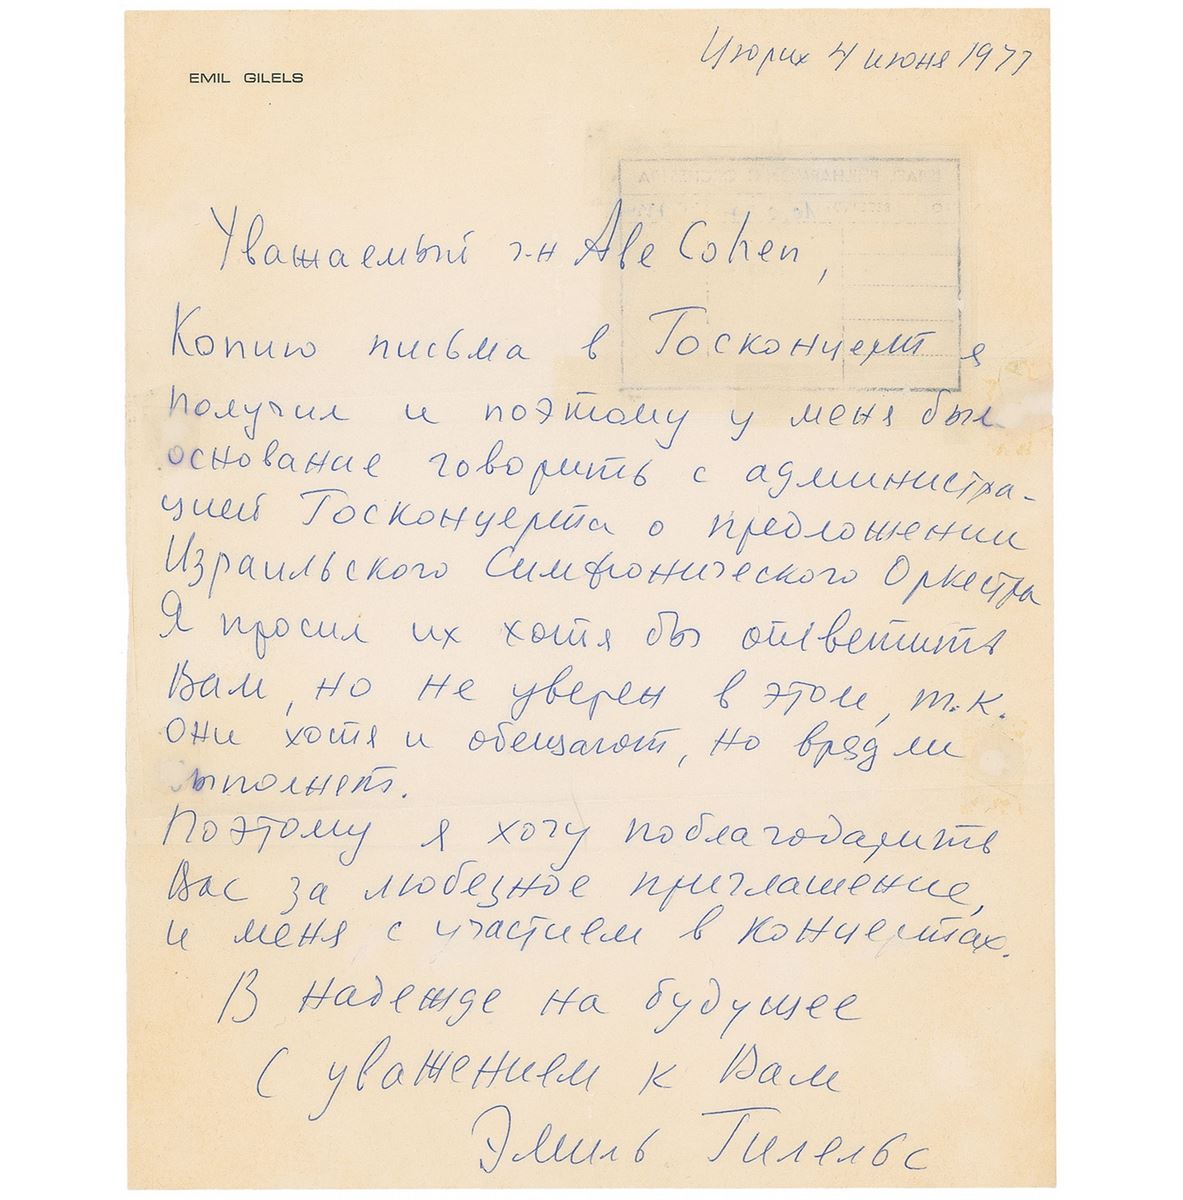 Цюрих 4 июня 1977
EMIL GILELS
Уважаемый г-н Abe Cohen,
Копию письма в Госконцерт я
получил и поэтому у меня был
основание говорить с администра-
цией Госконцерта о предложении
Израильского Симфонического Оркестра
Я просил их хотя бы ответить
Вам, но не уверен в этом, т.к.
они хотя и обещают, но вряд ли
выполнят.
Поэтому я хочу поблагодарить
Вас за любезное приглашение,
и меня с участием в концертах.
В надежде на будущее
С уважением к Вам
Эмиль Гилельс